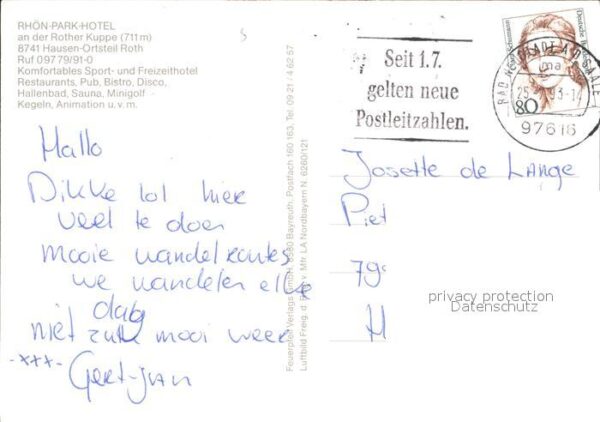 RHÖN-PARK-HOTEL
an der Rother Kuppe (711 m)
8741 Hausen-Ortsteil Roth
Ruf 097 79/91-0
Komfortables Sport- und Freizeithotel
Restaurants, Pub, Bistro, Disco,
Hallenbad, Sauna, Minigolf
Kegeln, Animation u. v. m.
Hallo
Dikke lol hier
veel te doen
mooie wandelroutes
we wandelen elke
dag
niet zulk mooi weer
-xxx-
Gert-Jan
Feuerpfeil Verlags GmbH, 8580 Bayreuth, Postfach 160 163, Tel. 09 21 / 4 62 67
Luftbild Freig. d. Reg. v. Mfr. LA Nordbayern N. 6260/121
Seit 1.7.
gelten neue
Postleitzahlen.
BAD NEUSTADT A D SAALE 1
ma
25 93-14
97616
Deutsche
80
Josette de Lange
Piet
79
H
privacy protection
Datenschutz